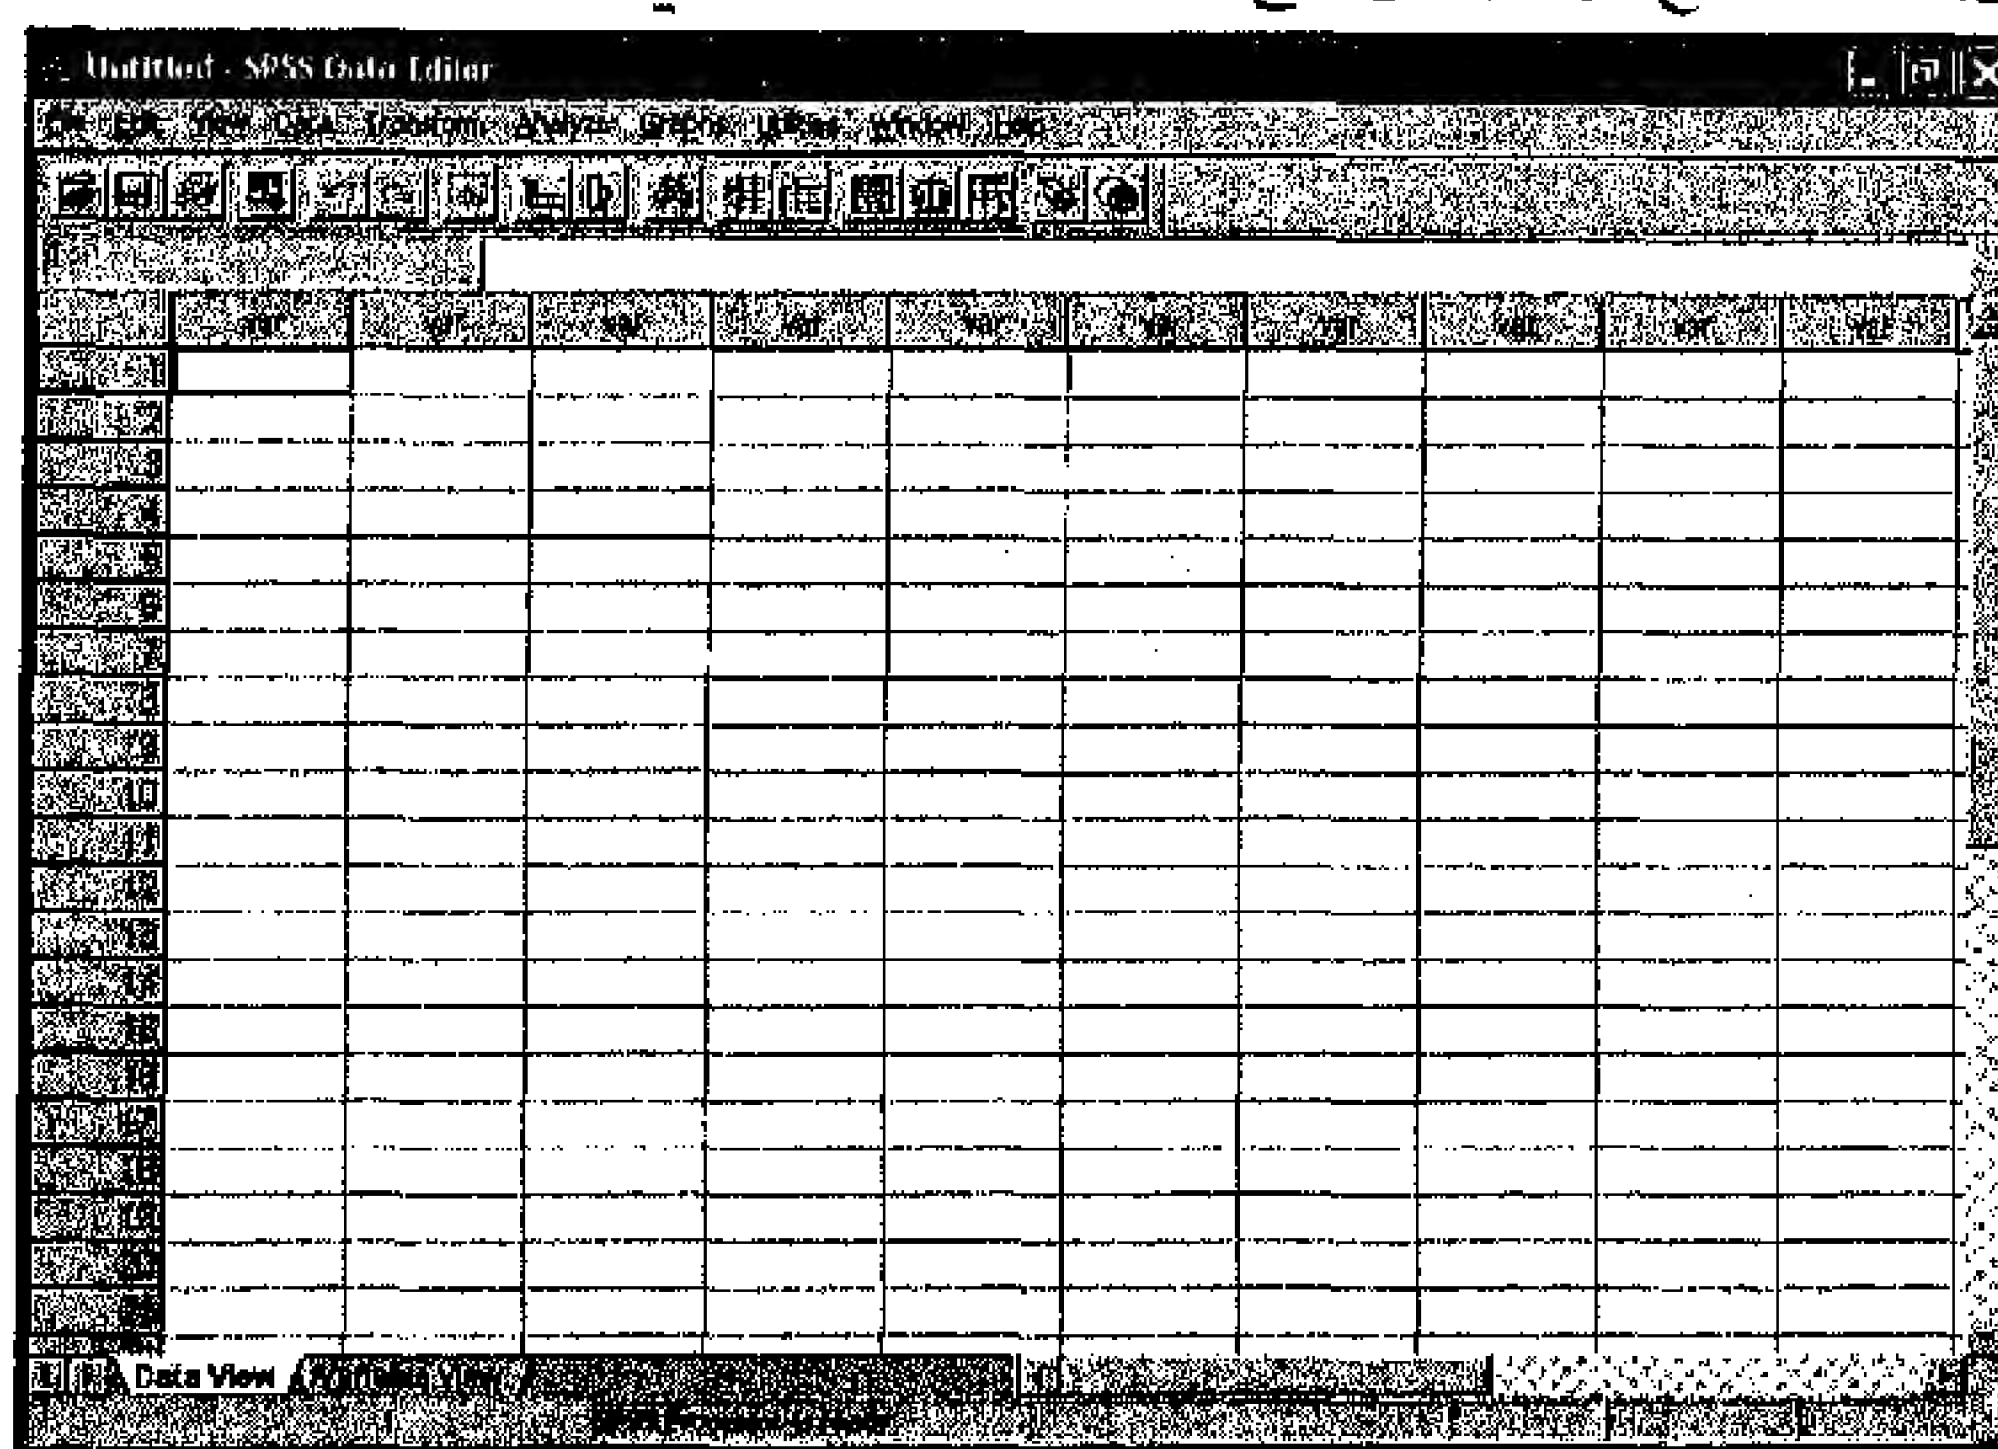 Untitled - SPSS Data Editor
File Edit View Data Transform Analyze Graphs Utilities Window Help
1:
var var var var var var var var var var
1
2
3
4
5
6
7
8
9
10
11
12
13
14
15
16
17
18
19
20
21
Data View Variable View
SPSS Processor is ready